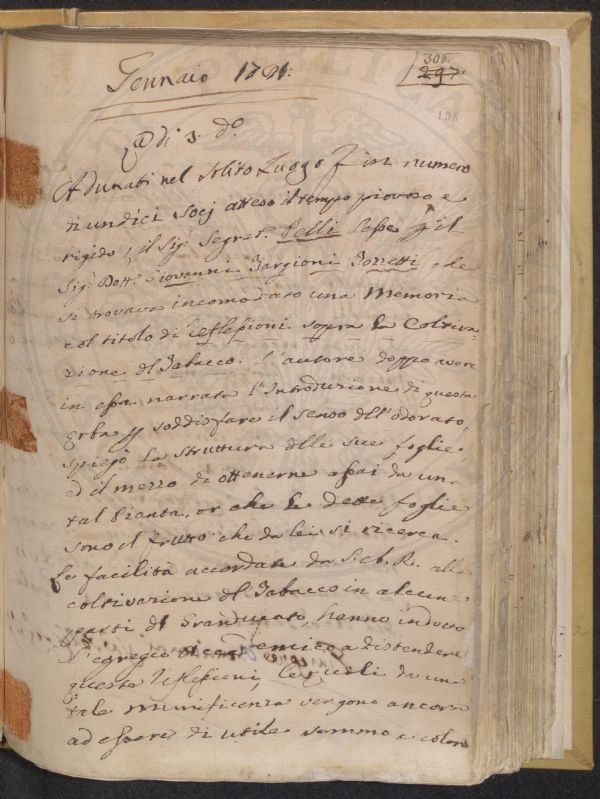 300.
297.
198
Gennaio 1791:
@ di 3. do.
Adunati nel solito Luogo in numero
di undici Socj atteso il tempo piovoso e
rigido, il Sigr. Segret. Pelli lesse p il
Sigr. Dott. Giovanni Targioni Tozzetti che
si trovava incomodato una Memoria
col titolo di Reflessioni sopra la Coltiva-
zione del Tabacco: l'autore doppo avere
in essa narrata l'Introduzione di questa
Erba p soddisfare il senso dell'odorato,
spiegò la struttura delle sue foglie
ed il mezzo di ottenerne assai da una
tal Pianta, or che le dette foglie
sono il frutto che da lei si ricerca.
Le facilità accordate da S. A. R. alla
coltivazione del Tabacco in alcune
parti del Granducato hanno indotto
l'egregio Accademico a distendere
queste Reflessioni, le quali da una
tale munificenza vengono ancora
ad essere di utile sommo e color